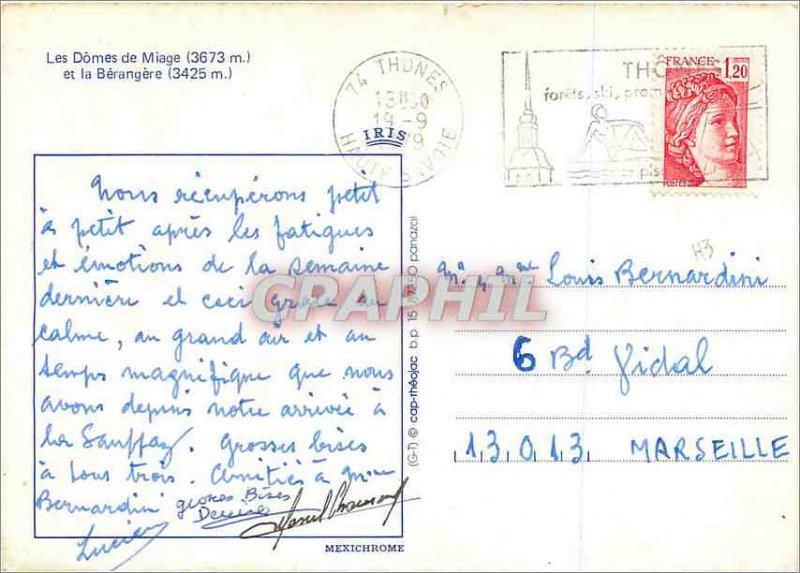 Les Dômes de Miage (3673 m.)
et la Bérangère (3425 m.)
74 THÔNES
13H30
19-9
1979
HAUTE SAVOIE
IRIS
THÔNES
forêts, ski, prom
pis
FRANCE
1,20
POSTES
Nous récupérons petit
à petit après les fatigues
et émotions de la semaine
dernière et ceci grâce au
calme, au grand air et au
temps magnifique que nous
avons depuis notre arrivée à
La Sauffaz. Grosses bises
à tous trois. Amitiés à Mme
Bernardini
grosses Bises
Denise
Lucien
Marcel
MEXICHROME
(G-1) © cap-théojac b.p. 15 87350 panazol
H3
Mr & Mme Louis Bernardini
6 Bd Vidal
13013 MARSEILLE
GRAPHIL